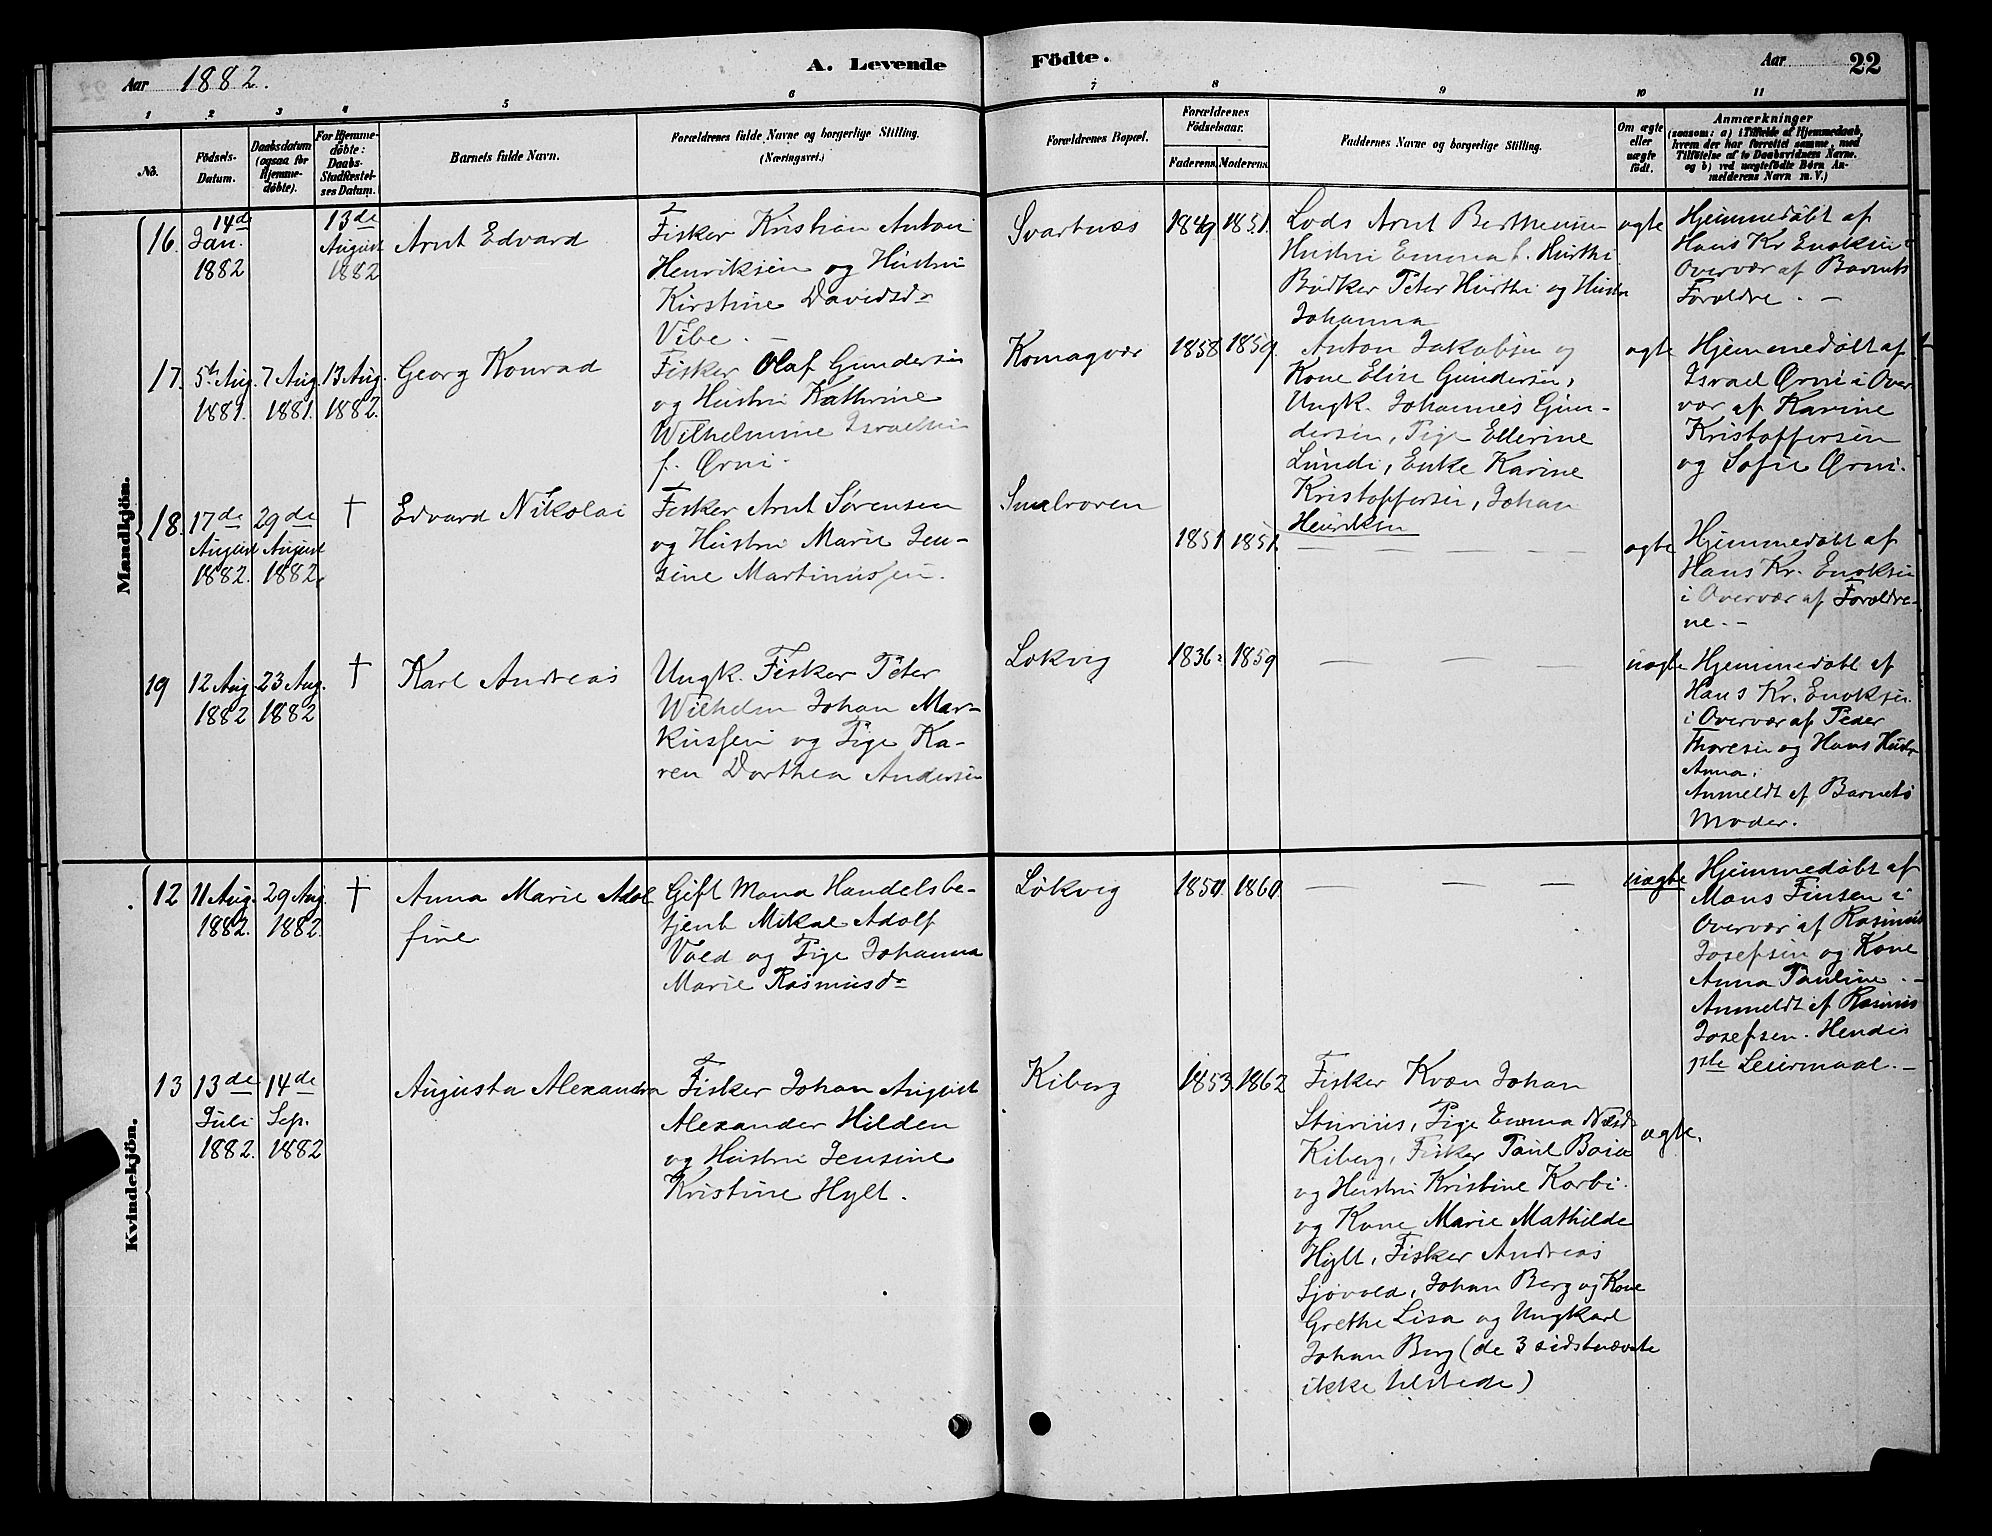 Aar 1882.
A. Levende
Födte.
Aar
22
1
2
3
4
5
6
7
8
9
10
11
No.
Födsels-
Datum.
Daabsdatum
(ogsaa for
Hjemme-
döbte).
For Hjemme-
döbte:
Daabs-
Stadfæstel-
ses Datum.
Barnets fulde Navn.
Forældrenes fulde Navne og borgerlige Stilling.
(Næringsvei.)
Forældrenes Bopæl.
Forældrenes
Födselsaar.
Faderens.
Moderens.
Faddernes Navne og borgerlige Stilling.
Om ægte
eller
uægte
födt.
Anmærkninger
(saasom: a) i Tilfælde af Hjemmedaab,
hvem der har forrettet samme, med
Tilföielse af to Daabsvidners Navne,
og b) ved uægtefödte Börn An-
melderens Navn m. V.)
Mandkjön.
16.
14de
Jan.
1882
13de
August
1882
Arnt Edvard
Fisker Kristian Anton
Henriksen og Hustru
Kirstine Davidsdr
Vibe. —
Svartnæs
1849
1851.
Lods Arnt Berthensen
Hustru Emma f. Hurthi
Bødker Peter Hurthi og Hustru
Johanna
ægte
Hjemmedøbt af
Hans Kr Enoksen i
Overvær af Barnets
Forældre. —
17.
5te Aug.
1881.
7 Aug.
1881.
13 Aug.
1882.
Georg Konrad
Fisker Olaf Gundersen
og Hustru Kathrine
Wilhelmine Israelsen
f. Ørni.
Komagvær
1858
1859.
Anton Jakobsen og
Kone Elise Gundersen,
Ungk. Johannes Gun-
dersen, Pige Ellerine
Lund, Enke Karine
Kristoffersen, Johan
Henriksen
ægte
Hjemmedøbt af
Israel Ørni i Over
vær af Karine
Kristoffersen
og Sofie Ørni.
18.
17de
August
1882.
29de
August
1882.
†
Edvard Nikolai
Fisker Arnt Sørensen
og Hustru Marie Jen-
sine Martinussen.
Smelroren
1851
1851.
— — — — —
ægte
Hjemmedøbt af
Hans Kr. Enoksen
i Overvær af Forældre-
ne. —
19
12 Aug.
1882
23 Aug.
1882
†
Karl Andreas
Ungk. Fisker Peter
Wilhelm Johan Mar-
kussen og Pige Ka-
ren Dorthea Andersen
Løkvig
1836
1859
— — —
uægte
Hjemmedøbt af
Hans Kr. Enoksen
i Overvær af Peder
Thoresen og Hans Hustr
Anna.
Anmeldt af Barnets
Moder.
Kvindekjön.
12
11 Aug.
1882.
29 Aug.
1882.
†
Anna Marie Adol
fine
Gift Mand Handelsbe-
tjent Mikal Adolf
Vold og Pige Johanna
Marie Rasmusdr
Løkvig
1850.
1860.
— — —
uægte
Hjemmedøbt af
Mons Finsen i
Overvær af Rasmus
Josefsen og Kone
Anna Pauline. —
Anmeldt af Rasmus
Josefsen. Hendes
1ste Leiermaal. —
13
13de
Juli
1882.
14de
Sep.
1882
Augusta Alexandra
Fisker Johan August
Alexander Hilden
og Hustru Jensine
Kristine Hylt.
Kiberg
1853.
1862
Fisker Kvæn Johan
Pige Emma
Kiberg, Fisker Paul
og Hustru Kristine Korbi.
og Kone Marie Mathilde
Hylt, Fisker Andreas
Sjøvold, Johan Berg og Kone
Grethe Lisa og Ungkarl
Johan Berg (de 3 sidstnævnte
ikke tilstede)
ægte.